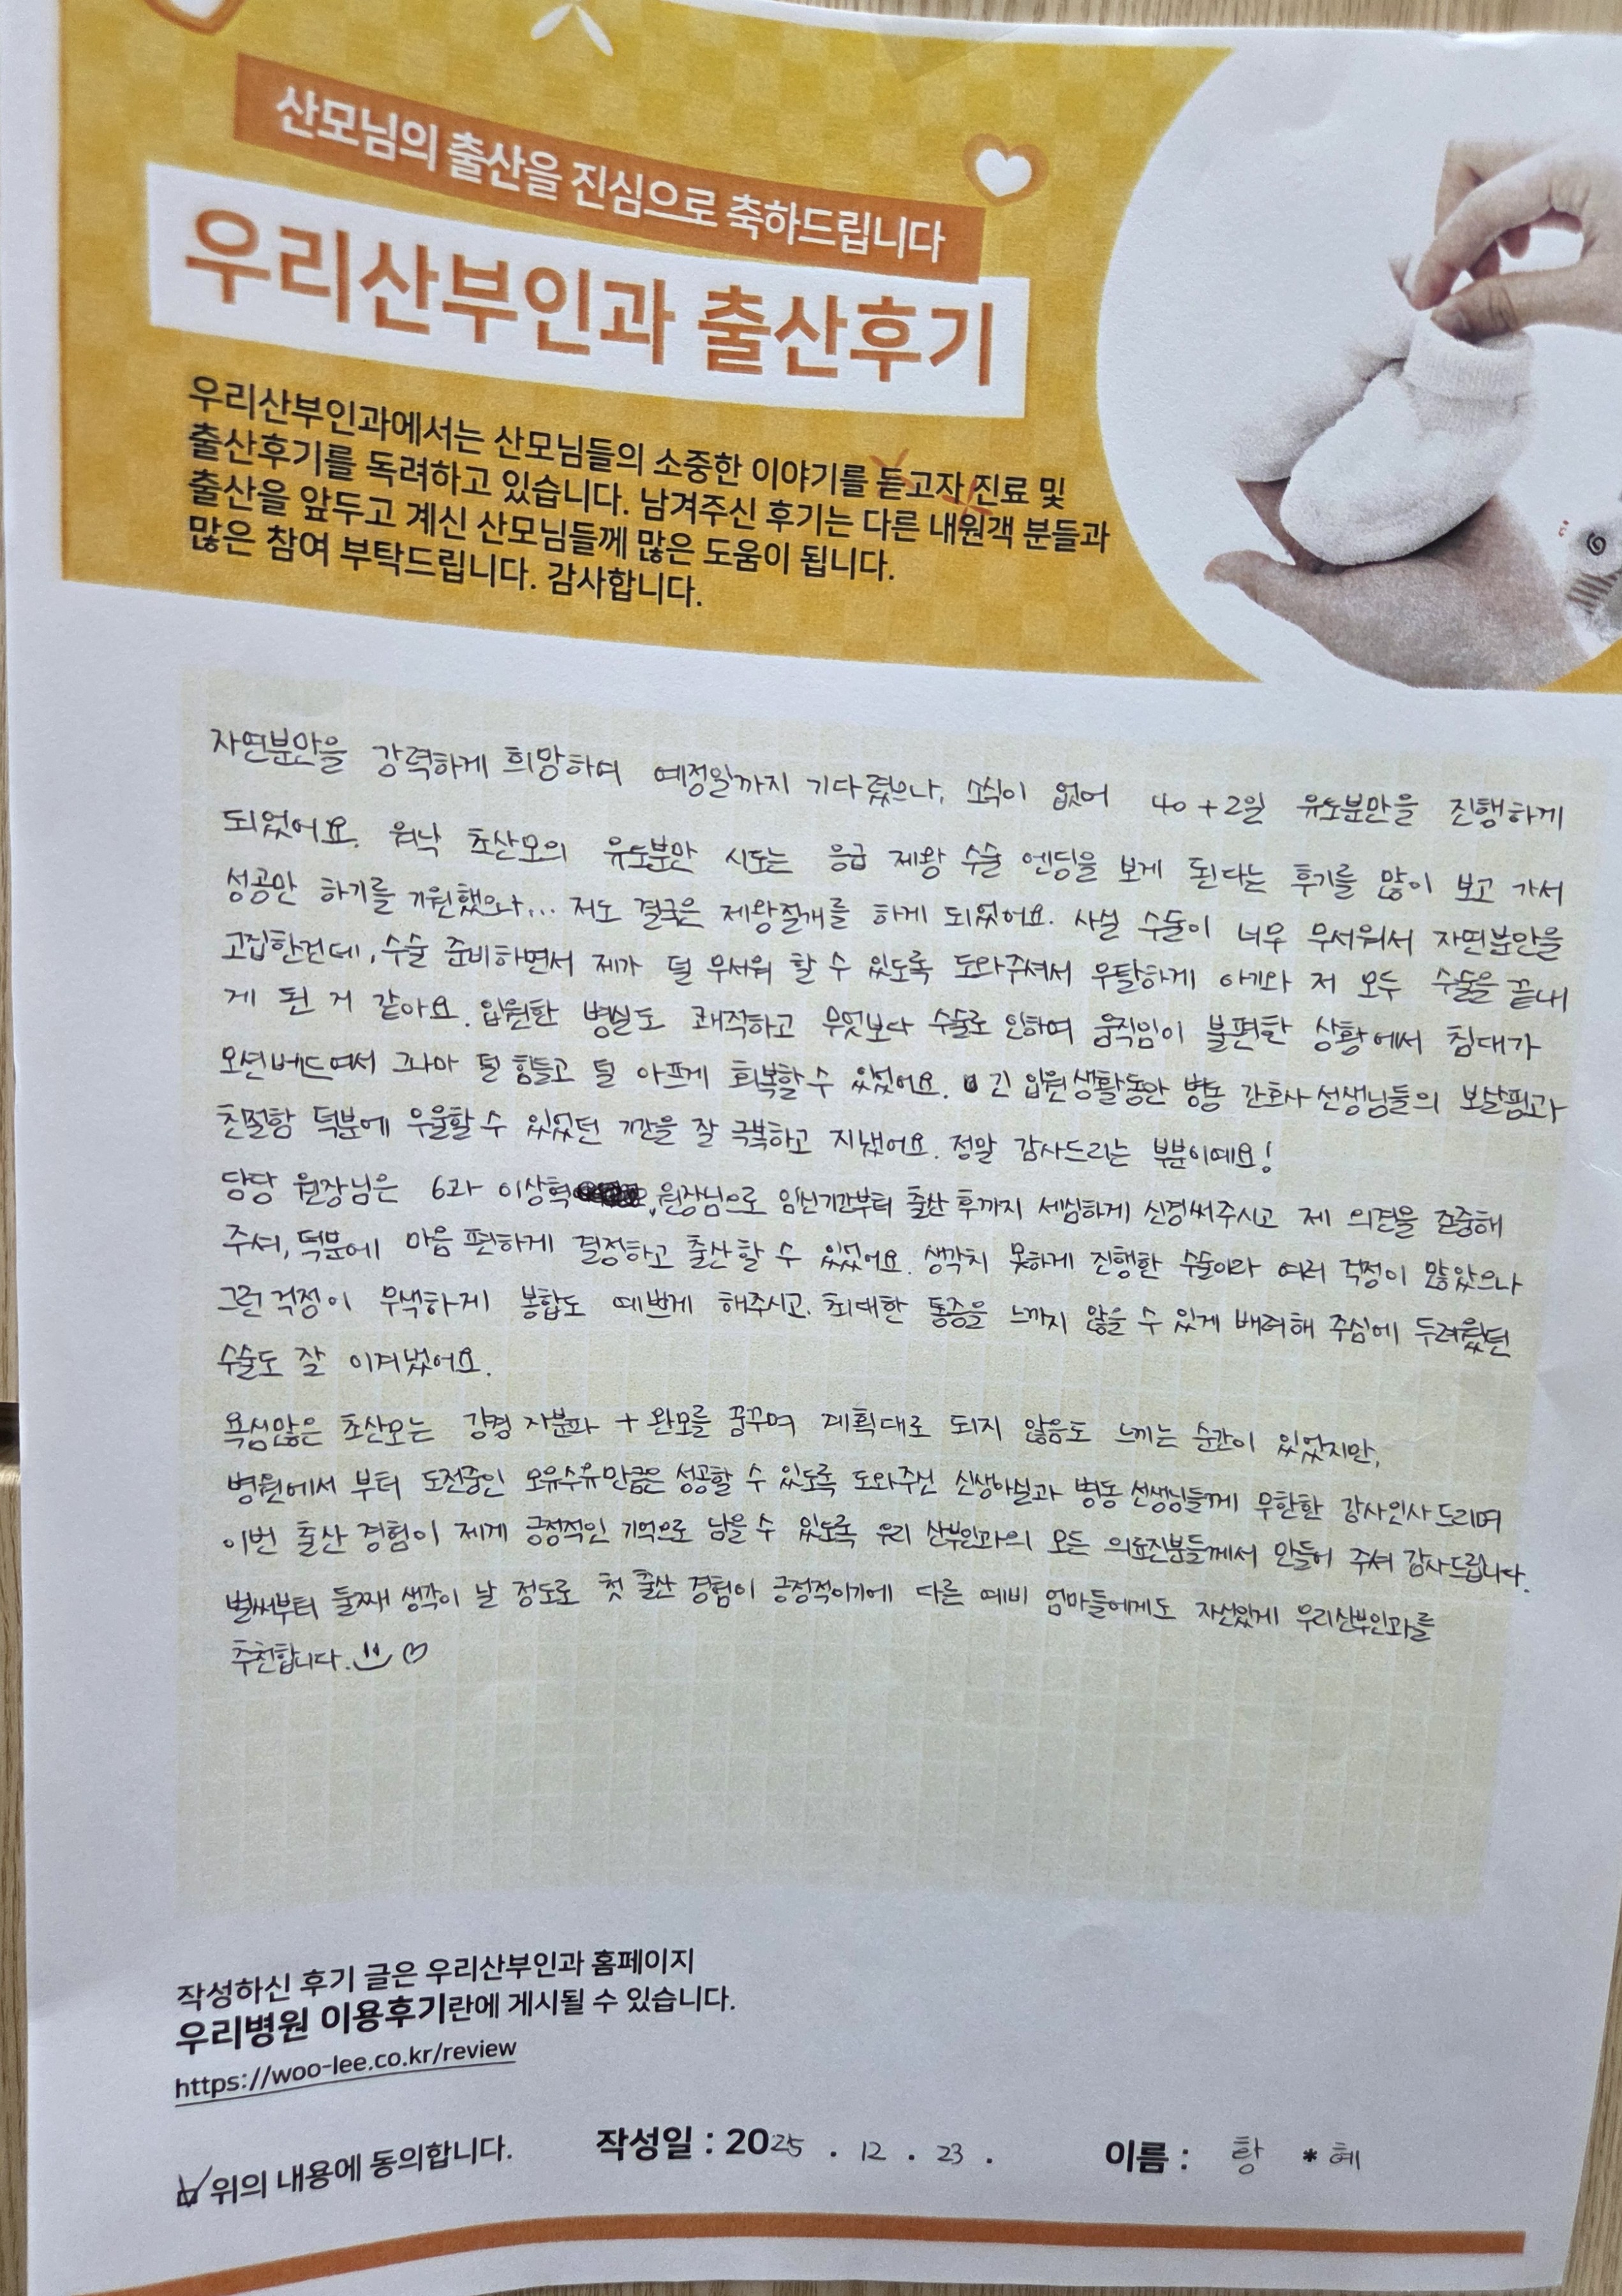 산모님의 출산을 진심으로 축하드립니다
우리산부인과 출산후기
우리산부인과에서는 산모님들의 소중한 이야기를 듣고자 진료 및
출산후기를 독려하고 있습니다. 남겨주신 후기는 다른 내원객 분들과
출산을 앞두고 계신 산모님들께 많은 도움이 됩니다.
많은 참여 부탁드립니다. 감사합니다.
자연분만을 강력하게 희망하여 예정일까지 기다렸으나, 소식이 없어 40+2일 유도분만을 진행하게
되었어요. 워낙 초산모의 유도분만 시도는 응급 제왕 수술 엔딩을 보게 된다는 후기를 많이 보고 가서
성공만 하기를 기원했으나... 저도 결국은 제왕절개를 하게 되었어요. 사실 수술이 너무 무서워서 자연분만을
고집한건데, 수술 준비하면서 제가 덜 무서워 할 수 있도록 도와주셔서 무탈하게 아기와 저 모두 수술을 끝내
게 된 거 같아요. 입원한 병실도 쾌적하고 무엇보다 수술로 인하여 움직임이 불편한 상황에서 침대가
모션베드여서 그나마 덜 힘들고 덜 아프게 회복할 수 있었어요. 긴 입원생활동안 병동 간호사 선생님들의 보살핌과
친절함 덕분에 우울할 수 있었던 기간을 잘 극복하고 지냈어요. 정말 감사드리는 부분이예요!
담당 원장님은 6과 이상혁 원장님으로 임신기간부터 출산 후까지 세심하게 신경써주시고 제 의견을 존중해
주셔, 덕분에 마음 편하게 결정하고 출산할 수 있었어요. 생각치 못하게 진행한 수술이라 여러 걱정이 많았으나
그런 걱정이 무색하게 봉합도 예쁘게 해주시고. 최대한 통증을 느끼지 않을 수 있게 배려해 주심에 두려웠던
수술도 잘 이겨냈어요.
욕심많은 초산모는 강경 자분파 + 완모를 꿈꾸며 계획대로 되지 않음도 느끼는 순간이 있었지만,
병원에서 부터 도전중인 모유수유만큼은 성공할 수 있도록 도와주신 신생아실과 병동 선생님들께 무한한 감사인사 드리며
이번 출산 경험이 제게 긍정적인 기억으로 남을 수 있도록 우리 산부인과의 모든 의료진분들께서 만들어 주셔 감사드립니다.
벌써부터 둘째 생각이 날 정도로 첫 출산 경험이 긍정적이기에 다른 예비 엄마들에게도 자신있게 우리산부인과를
추천합니다.
작성하신 후기 글은 우리산부인과 홈페이지
우리병원 이용후기란에 게시될 수 있습니다.
https://woo-lee.co.kr/review
위의 내용에 동의합니다. 작성일 : 2025 . 12 . 23 . 이름 : 황 * 혜